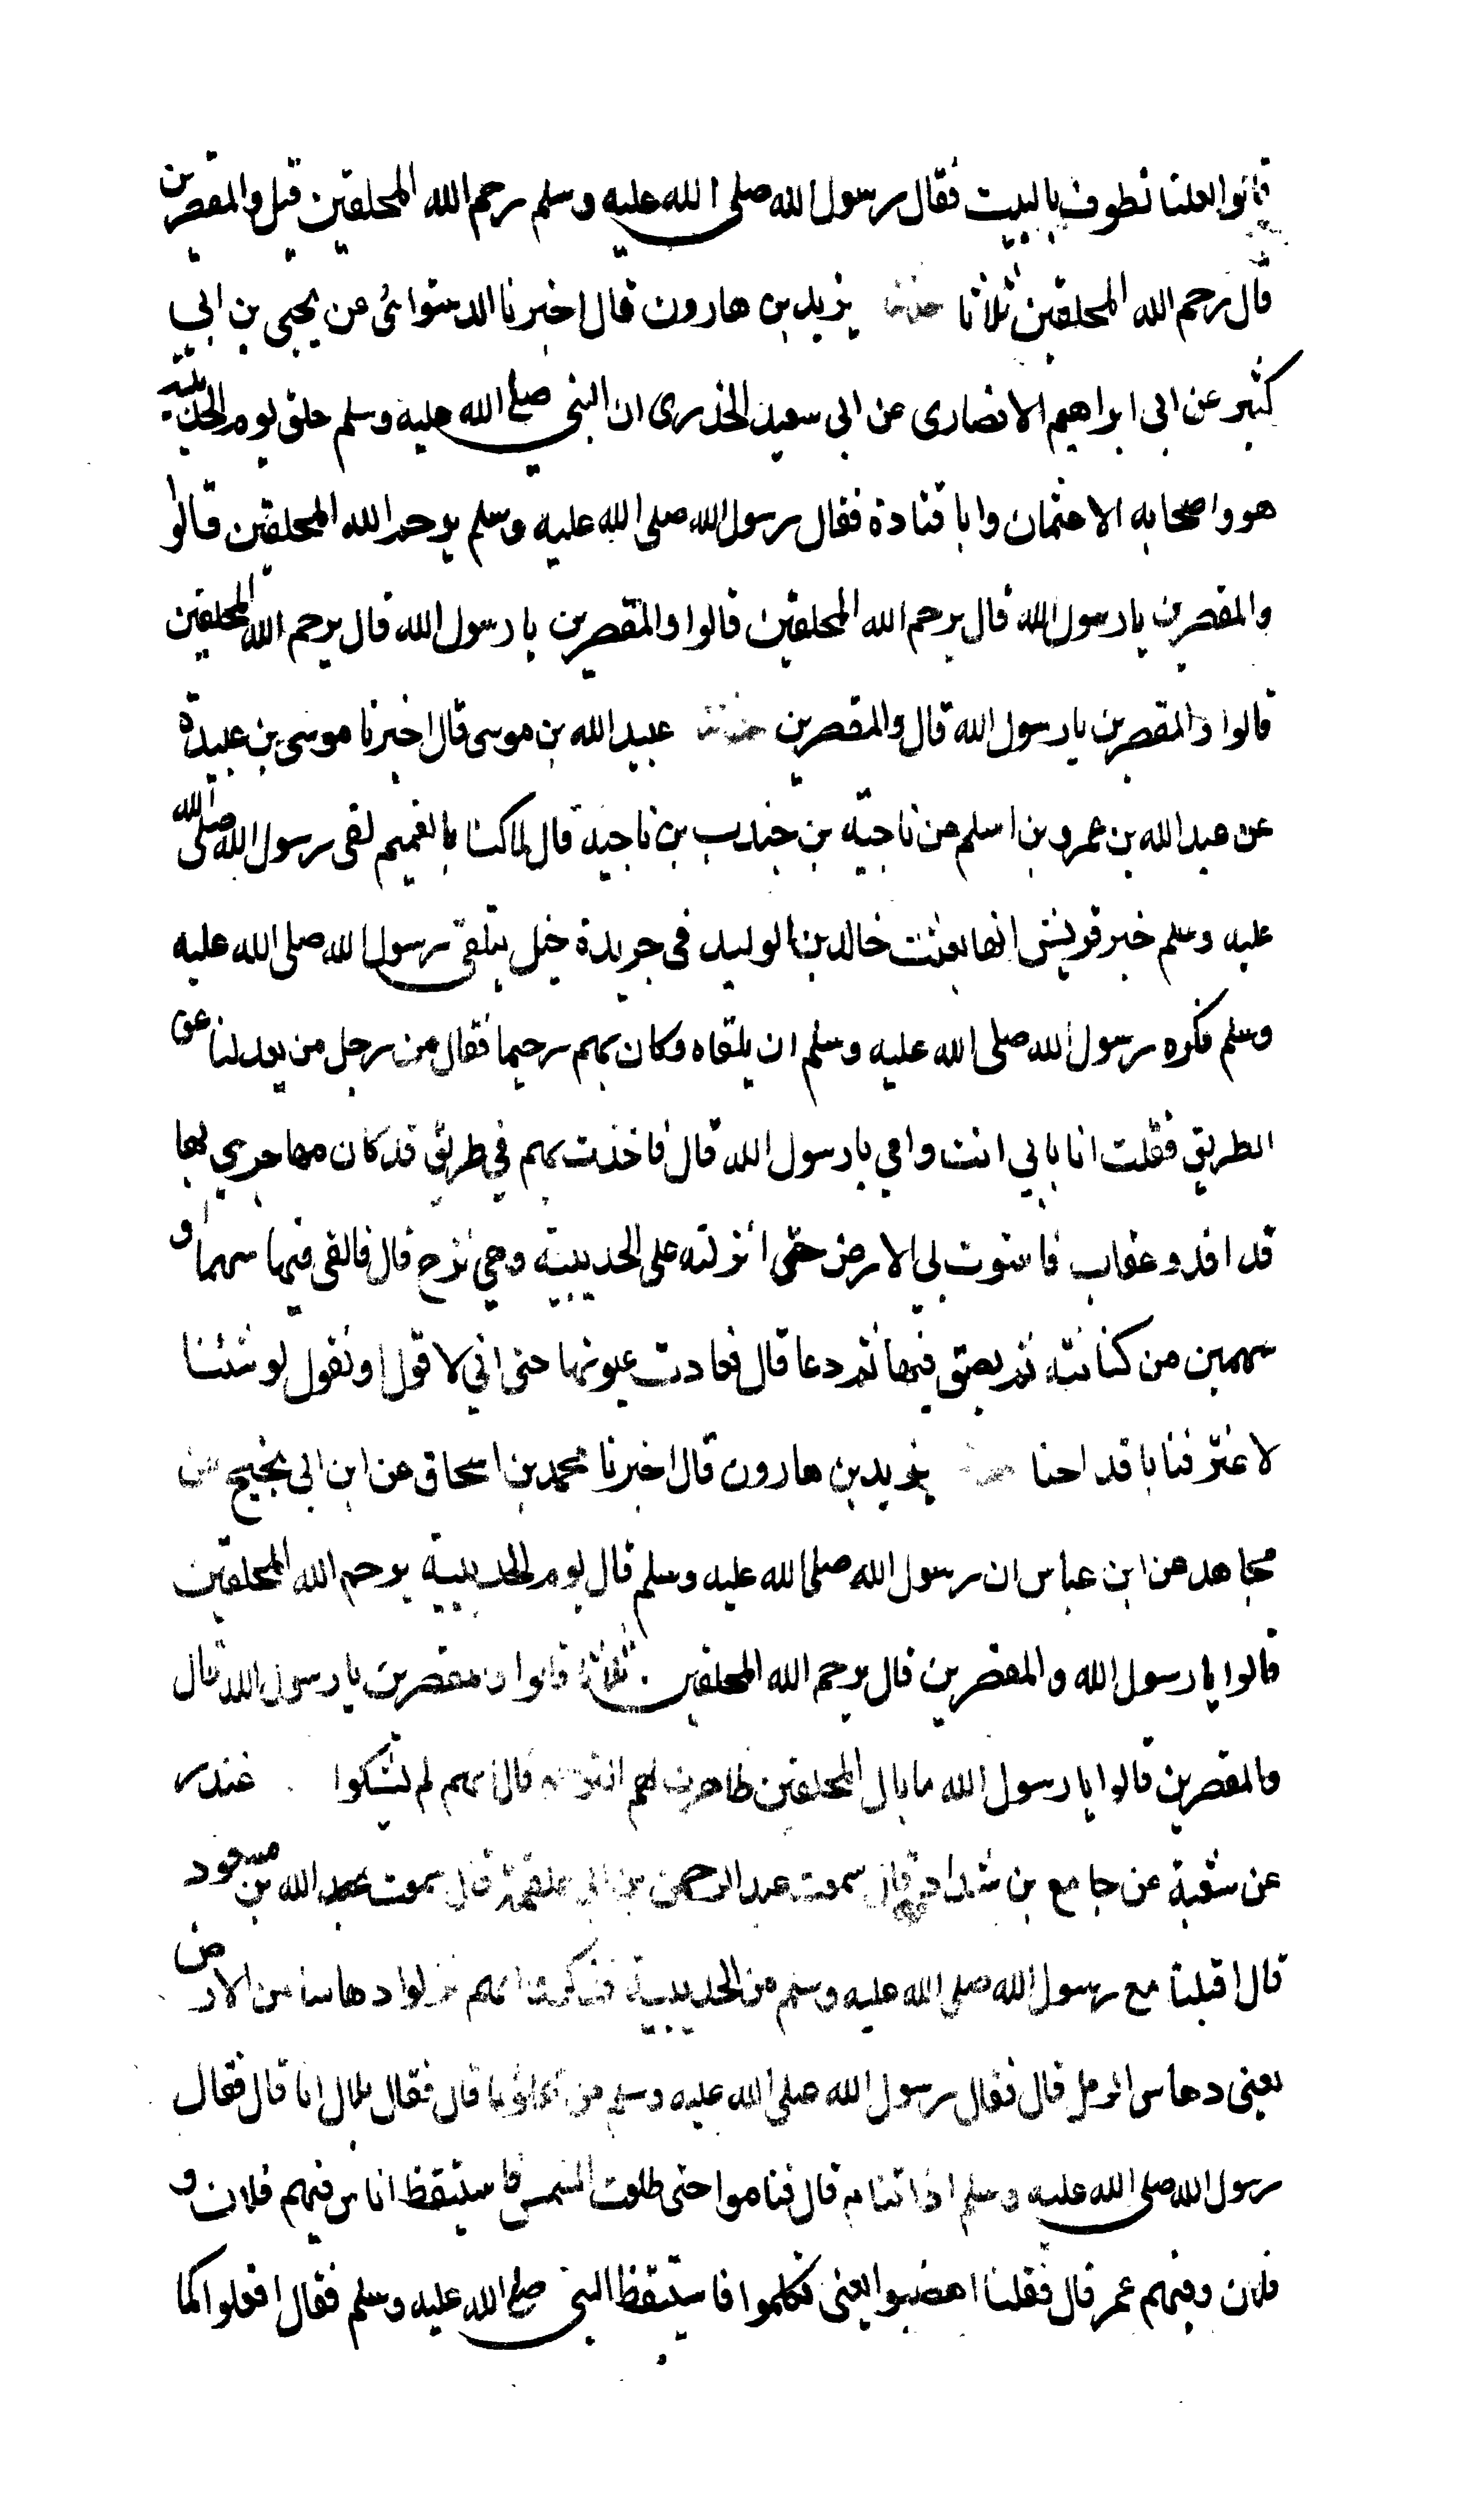 قالوا لعلنا نطوف بالبيت فقال رسول الله صلى الله عليه وسلم رحم الله المحلقين قيل والمقصرين
قال رحم الله المحلقين ثلاثا حدثنا يزيد بن هارون قال اخبرنا الدستوائى عن يحيى بن ابي
كثير عن ابى ابراهيم الانصارى عن ابى سعيد الخدرى ان النبى صلى الله عليه وسلم حلق يوم الحديبية
هو واصحابه الا عثمان وابا قتادة فقال رسول الله صلى الله عليه وسلم يرحم الله المحلقين قالوا
والمقصرين يا رسول الله قال يرحم الله المحلقين قالوا والمقصرين يا رسول الله قال يرحم الله المحلقين
قالوا والمقصرين يا رسول الله قال والمقصرين حدثنا عبيد الله بن موسى قال اخبرنا موسى بن عبيدة
عن عبد الله بن عمرو بن اسلم عن ناجية بن جندب بن ناجية قال لما كنا بالغميم لقى رسول الله صلى الله
عليه وسلم خبر قريش انها بعثت خالد بن الوليد فى جريدة خيل يتلقى رسول الله صلى الله عليه
وسلم فكره رسول الله صلى الله عليه وسلم ان يلقاه وكان بهم رحيما فقال من رجل من يعدلنا عن
الطريق فقلت انا بابي انت وامي يا رسول الله قال فاخذت بهم في طريق قد كان مهاجري بها
قد افد وعقاب فاستوت لي الارض حتى انزلته على الحديبية وهي نزح قال فالقى فيها سهما او
سهمين من كنانته ثم بصق فيها ثم دعا قال فعادت عيونها حتى اني لاقول او نقول لو شئنا
لاغترفنا باقداحنا حدثنا يزيد بن هارون قال اخبرنا محمد بن اسحاق عن ابن ابى نجيح عن
مجاهد عن ابن عباس ان رسول الله صلى الله عليه وسلم قال يوم الحديبية يرحم الله المحلقين
قالوا يا رسول الله والمقصرين قال يرحم الله المحلقين ثلاثا قالوا والمقصرين يا رسول الله قال
والمقصرين قالوا يا رسول الله ما بال المحلقين ظاهرت لهم الترحم قال انهم لم يشكوا غندر
عن شعبة عن جامع بن شداد قال سمعت عبد الرحمن بن ابى علقمة قال سمعت عبد الله بن مسعود
قال اقبلنا مع رسول الله صلى الله عليه وسلم من الحديبية فذكروا انهم نزلوا دهاسا من الارض
يعنى دهاس الرمل قال فقال رسول الله صلى الله عليه وسلم من يكلؤنا قال فقال بلال انا قال فقال
رسول الله صلى الله عليه وسلم اذا تنام قال فناموا حتى طلعت الشمس فاستيقظ اناس فيهم فلان و
فلان وفيهم عمر قال فقلنا اهضبوا يعنى تكلموا فاستيقظ النبى صلى الله عليه وسلم فقال افعلوا كما